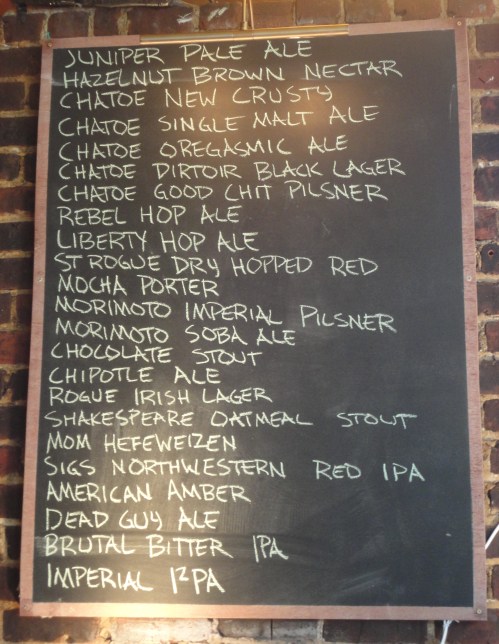 JUNIPER PALE ALE
HAZELNUT BROWN NECTAR
CHATOE NEW CRUSTY
CHATOE SINGLE MALT ALE
CHATOE OREGASMIC ALE
CHATOE DIRTOIR BLACK LAGER
CHATOE GOOD CHIT PILSNER
REBEL HOP ALE
LIBERTY HOP ALE
ST ROGUE DRY HOPPED RED
MOCHA PORTER
MORIMOTO IMPERIAL PILSNER
MORIMOTO SOBA ALE
CHOCOLATE STOUT
CHIPOTLE ALE
ROGUE IRISH LAGER
SHAKESPEARE OATMEAL STOUT
MOM HEFEWEIZEN
SIGS NORTHWESTERN RED IPA
AMERICAN AMBER
DEAD GUY ALE
BRUTAL BITTER IPA
IMPERIAL I²PA